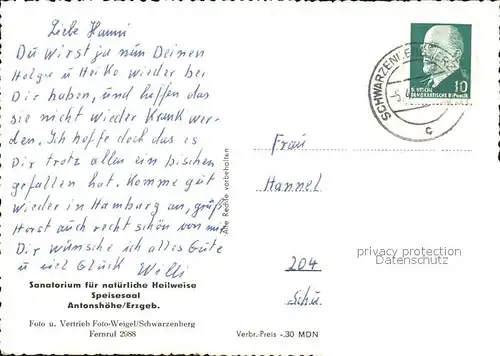 Liebe Hanni
Du wirst ja nun Deinen
Holger u Heiko wieder bei
Dir haben, und hoffen das
sie nicht wieder Krank wer-
den. Ich hoffe doch das es
Dir trotz allen ein bischen
gefallen hat. Komme gut
wieder in Hamburg an, grüß
Horst auch recht schön von mir
Dir wünsche ich alles Gute
u viel Glück Willi
Sanatorium für natürliche Heilweise
Speisesaal
Antonshöhe/Erzgeb.
Foto u. Vertrieb Foto-Weigel/Schwarzenberg
Fernruf 2988
Alle Rechte vorbehalten
SCHWARZENBERG
c
10
DEUTSCHE
DEMOKRATISCHE REPUBLIK
Frau
Hannel
204
Schu
privacy protection
Datenschutz
Verbr.-Preis -.30 MDN